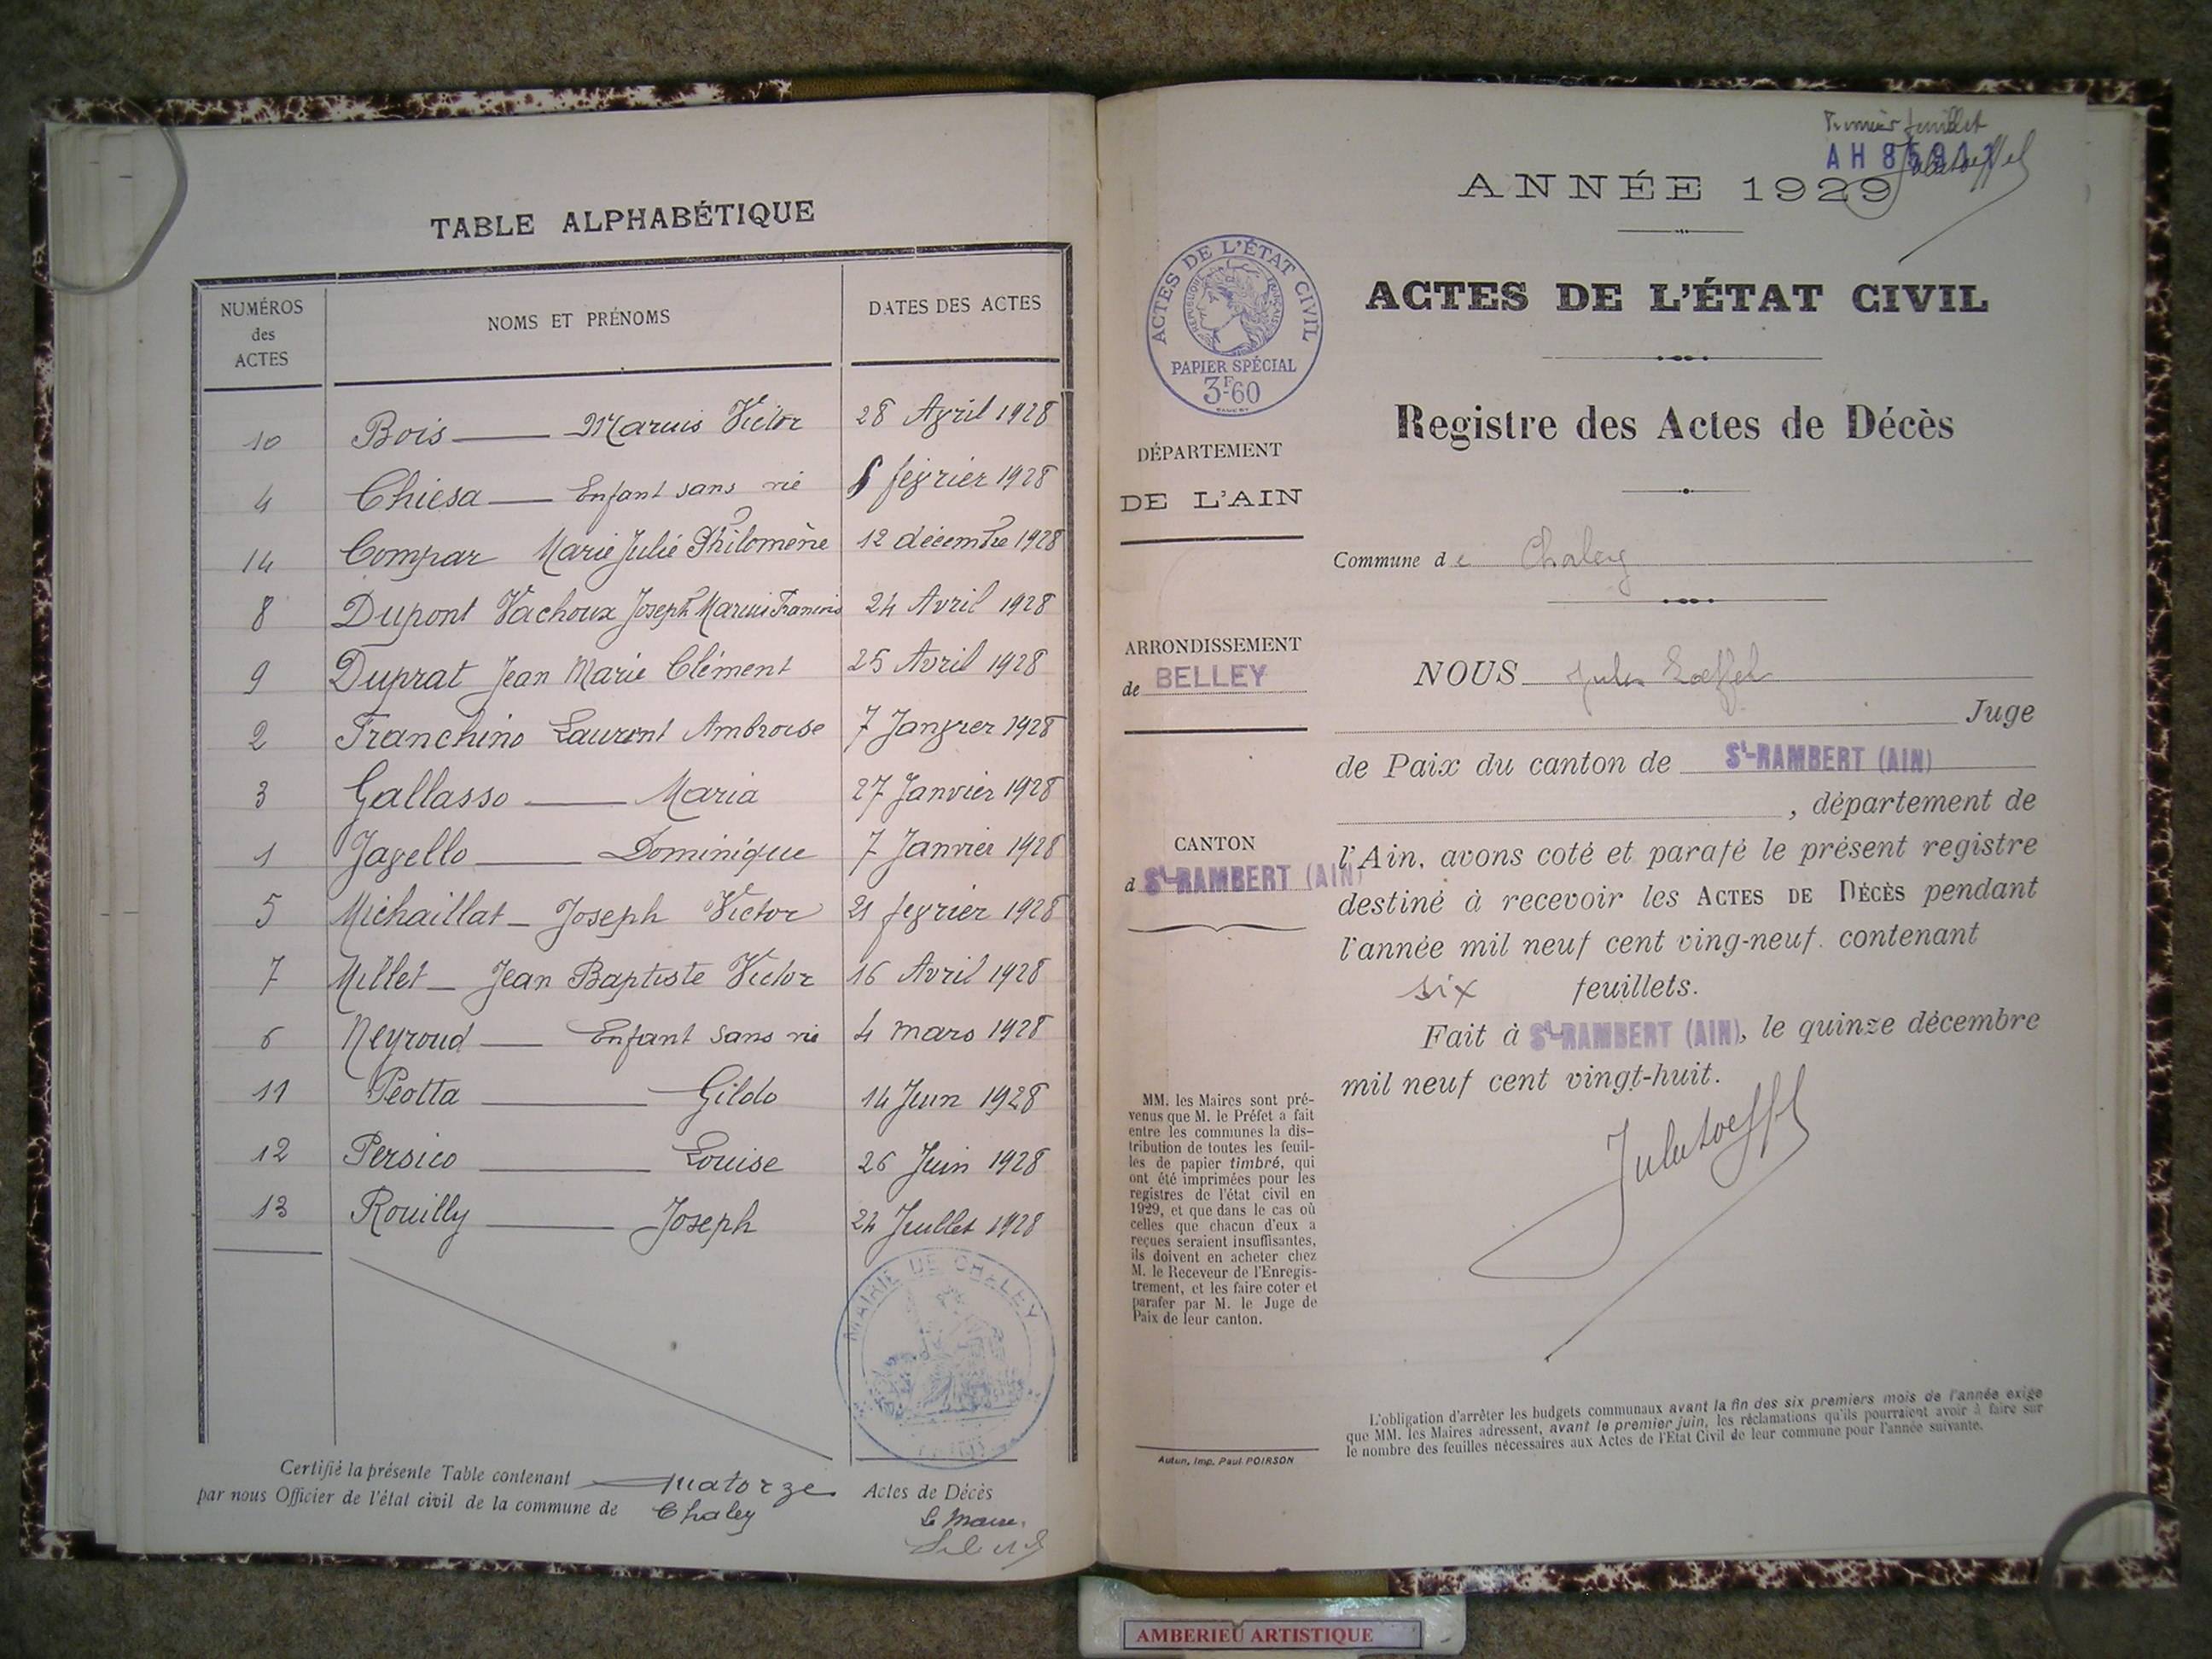 TABLE ALPHABÉTIQUE
NUMÉROS des ACTES NOMS ET PRÉNOMS DATES DES ACTES
10 Bois — Marius Victor 28 Avril 1928
4 Chiesa — Enfant sans vie février 1928
14 Compar Marie Julie Philomène 12 décembre 1928
8 Dupont Vachoux Joseph Marius Francois 24 Avril 1928
9 Duprat Jean Marie Clément 25 Avril 1928
2 Franchino Laurent Ambroise 7 Janvier 1928
3 Gallasso — Maria 27 Janvier 1928
1 Jagello — Dominique 7 Janvier 1928
5 Michaillat — Joseph Victor 21 février 1928
7 Millet — Jean Baptiste Victor 16 Avril 1928
6 Neyroud — Enfant sans vie 4 mars 1928
11 Peotta — Gildo 14 Juin 1928
12 Persico — Louise 26 Juin 1928
13 Rouilly — Joseph 24 Juillet 1928
MAIRIE DE CHALEY
Certifié la présente Table contenant quatorze Actes de Décès
par nous Officier de l'état civil de la commune de Chaley
Le Maire,
Premier feuillet
AH
ANNÉE 1929
ACTES DE L'ÉTAT CIVIL
RÉPUBLIQUE FRANÇAISE
PAPIER SPÉCIAL
3F-60
ACTES DE L'ÉTAT CIVIL
Registre des Actes de Décès
DÉPARTEMENT
DE L'AIN
Commune de Chaley
ARRONDISSEMENT
de BELLEY
NOUS Jules Loeffel
Juge
de Paix du canton de St-RAMBERT (AIN)
, département de
CANTON
d St-RAMBERT (AIN)
l'Ain, avons coté et parafé le présent registre
destiné à recevoir les ACTES DE DÉCÈS pendant
l'année mil neuf cent ving-neuf. contenant
six feuillets.
Fait à St-RAMBERT (AIN), le quinze décembre
mil neuf cent vingt-huit.
Jules Loeffel
MM. les Maires sont pré-
venus que M. le Préfet a fait
entre les communes la dis-
tribution de toutes les feuil-
les de papier timbré, qui
ont été imprimées pour les
registres de l'état civil en
1929, et que dans le cas où
celles que chacun d'eux a
reçues seraient insuffisantes,
ils doivent en acheter chez
M. le Receveur de l'Enregis-
trement, et les faire coter et
parafer par M. le Juge de
Paix de leur canton.
Autun, Imp. Paul POIRSON
L'obligation d'arrêter les budgets communaux avant la fin des six premiers mois de l'année exige
que MM. les Maires adressent, avant le premier juin, les réclamations qu'ils pourraient avoir à faire sur
le nombre des feuilles nécessaires aux Actes de l'Etat Civil de leur commune pour l'année suivante.
AMBERIEU ARTISTIQUE